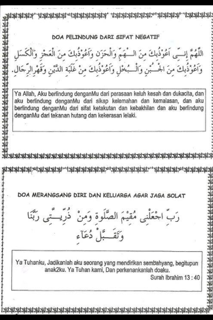 DOA PELINDUNG DARI SIFAT NEGATIF
اللَّهُمَّ إِنِّى أَعُوْذُبِكَ مِنَ الْهَمِّ وَالْحَزَنِ وَأَعُوْذُبِكَ مِنَ الْعَجْزِ وَالْكَسَلِ
وَأَعُوْذُبِكَ مِنَ الْجُبْنِ وَالْبُخْلِ وَأَعُوْذُبِكَ مِنْ غَلَبَةِ الدَّيْنِ وَقَهْرِ الرِّجَالِ.
Ya Allah, Aku berlindung denganMu dari perasaan keluh kesah dan dukacita, dan
aku berlindung denganMu dari sikap kelemahan dan kemalasan, dan aku
berlindung denganMu dari sifat ketakutan dan kebakhilan dan aku berlindung
denganMu dari tekanan hutang dan kekerasan lelaki.
DOA MERANGSANG DIRI DAN KELUARGA AGAR JAGA SOLAT
رَبِّ اجْعَلْنِى مُقِيْمَ الصَّلَوةِ وَمِنْ ذُرِّيَّتِى رَبَّنَا
وَتَقَبَّلْ دُعَآءِ
Ya Tuhanku, Jadikanlah aku seorang yang mendirikan sembahyang, begitupun
anak2ku. Ya Tuhan kami, Dan perkenankanlah doaku.
Surah Ibrahim 13 : 40